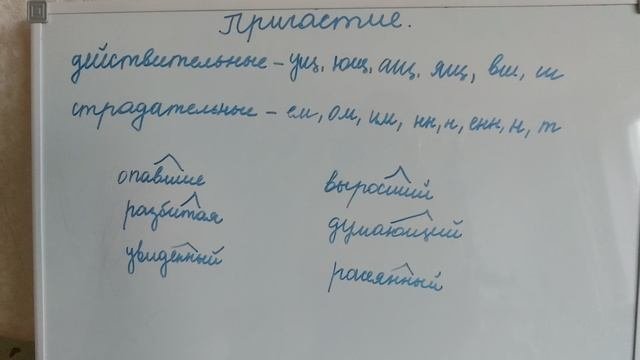 Причастие.
действительные – ущ, ющ, ащ, ящ, вш, ш
страдательные – ем, ом, им, нн, н, енн, н, т
опавшие выросший
разбитая думающий
увиденный рассеянный